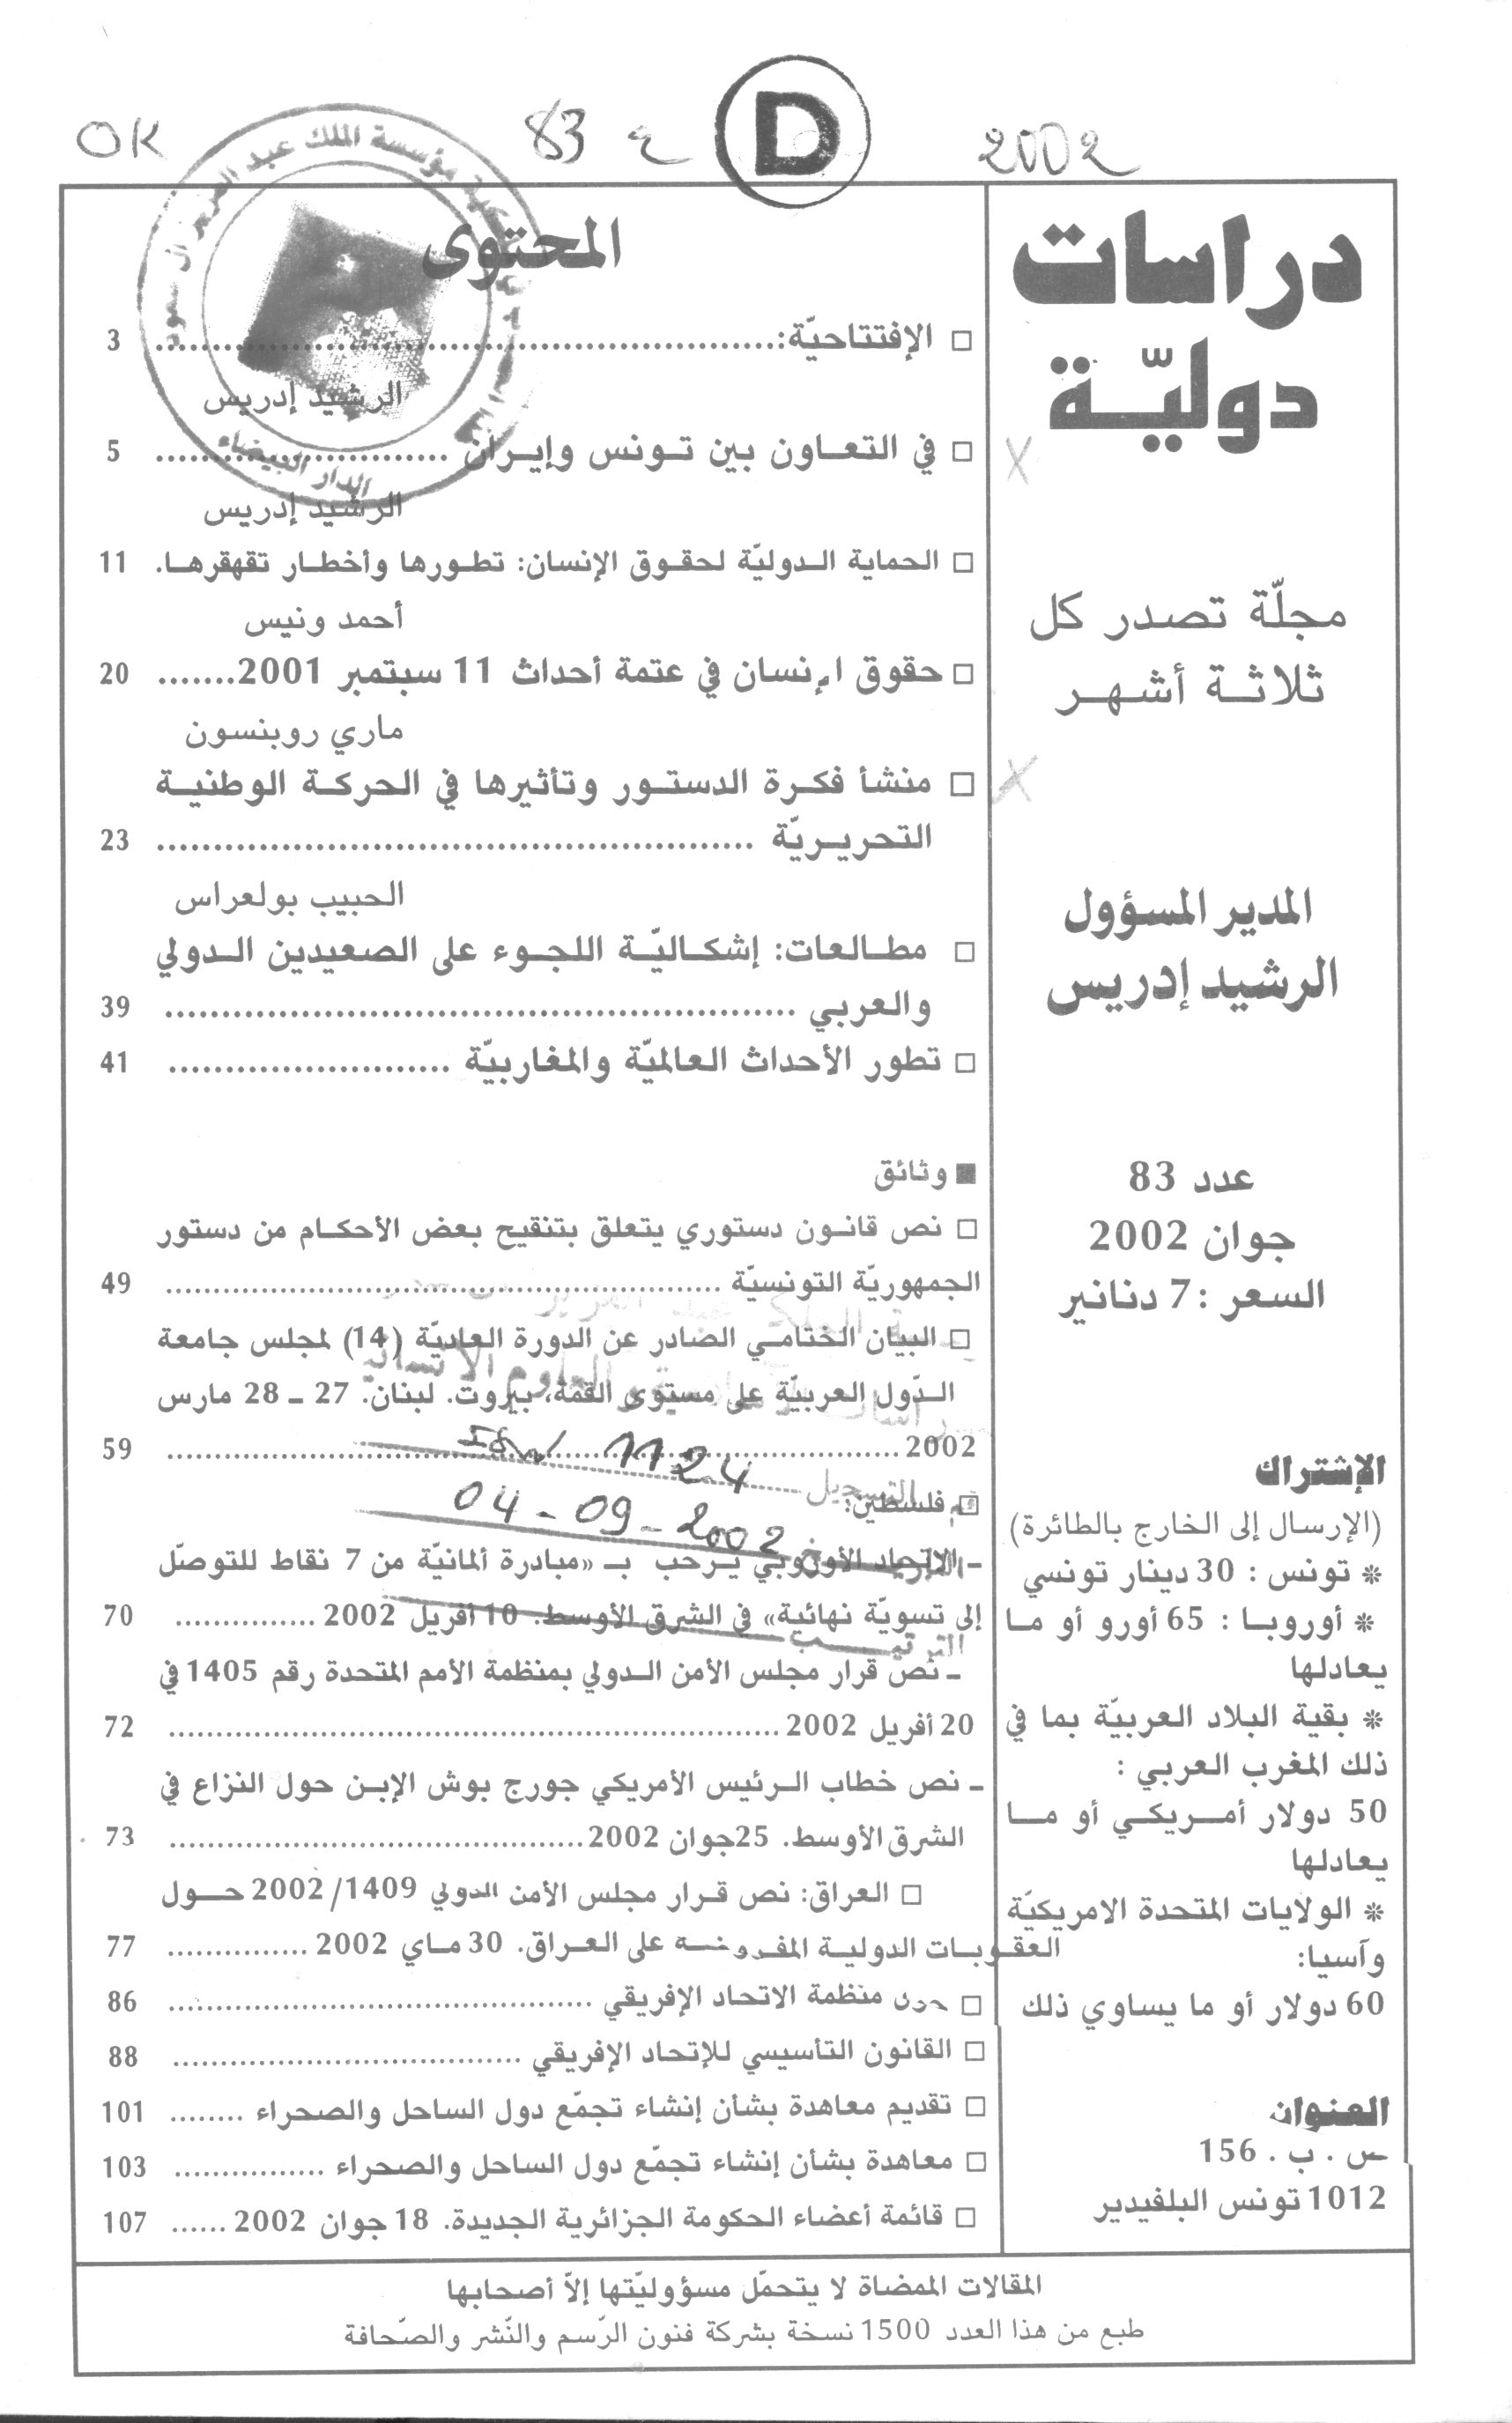 OK
83 ع
D
2002
دراسات
دوليّة
مجلّة تصدر كل
ثلاثة أشهر
المدير المسؤول
الرشيد إدريس
عدد 83
جوان 2002
السعر : 7 دنانير
الإشتراك
(الإرسال إلى الخارج بالطائرة)
* تونس : 30 دينار تونسي
* أوروبا : 65 أورو أو ما
يعادلها
* بقية البلاد العربيّة بما في
ذلك المغرب العربي :
50 دولار أمريكي أو ما
يعادلها
* الولايات المتحدة الامريكيّة
وآسيا:
60 دولار أو ما يساوي ذلك
العنوان
ص . ب . 156
1012 تونس البلفيدير
المحتوى
□ الإفتتاحيّة: 3
الرشيد إدريس
□ في التعاون بين تونس وإيران 5
الرشيد إدريس
□ الحماية الدوليّة لحقوق الإنسان: تطورها وأخطار تقهقرها. 11
أحمد ونيس
□ حقوق الإنسان في عتمة أحداث 11 سبتمبر 2001 20
ماري روبنسون
□ منشأ فكرة الدستور وتأثيرها في الحركة الوطنية
التحريريّة 23
الحبيب بولعراس
□ مطالعات: إشكاليّة اللجوء على الصعيدين الدولي
والعربي 39
□ تطور الأحداث العالميّة والمغاربيّة 41
■ وثائق
□ نص قانون دستوري يتعلق بتنقيح بعض الأحكام من دستور
الجمهوريّة التونسيّة 49
□ البيان الختامي الصادر عن الدورة العاديّة (14) لمجلس جامعة
الدّول العربيّة على مستوى القمة، بيروت. لبنان. 27 - 28 مارس
2002 59
□ فلسطين:
- الاتحاد الأوروبي يرحب بـ «مبادرة ألمانيّة من 7 نقاط للتوصّل
إلى تسويّة نهائية» في الشرق الأوسط. 10 أفريل 2002 70
- نص قرار مجلس الأمن الدولي بمنظمة الأمم المتحدة رقم 1405 في
20 أفريل 2002 72
- نص خطاب الرئيس الأمريكي جورج بوش الإبن حول النزاع في
الشرق الأوسط. 25جوان 2002 73
□ العراق: نص قرار مجلس الأمن الدولي 1409/2002 حول
العقوبات الدولية المفروضة على العراق. 30 ماي 2002 77
□ حول منظمة الاتحاد الإفريقي 86
□ القانون التأسيسي للإتحاد الإفريقي 88
□ تقديم معاهدة بشأن إنشاء تجمّع دول الساحل والصحراء 101
□ معاهدة بشأن إنشاء تجمّع دول الساحل والصحراء 103
□ قائمة أعضاء الحكومة الجزائرية الجديدة. 18 جوان 2002 107
مؤسسة الملك عبد العزيز آل سعود
الدار البيضاء
التسجيل 1124
04-09-2002
المقالات الممضاة لا يتحمّل مسؤوليّتها إلاّ أصحابها
طبع من هذا العدد 1500 نسخة بشركة فنون الرّسم والنّشر والصّحافة